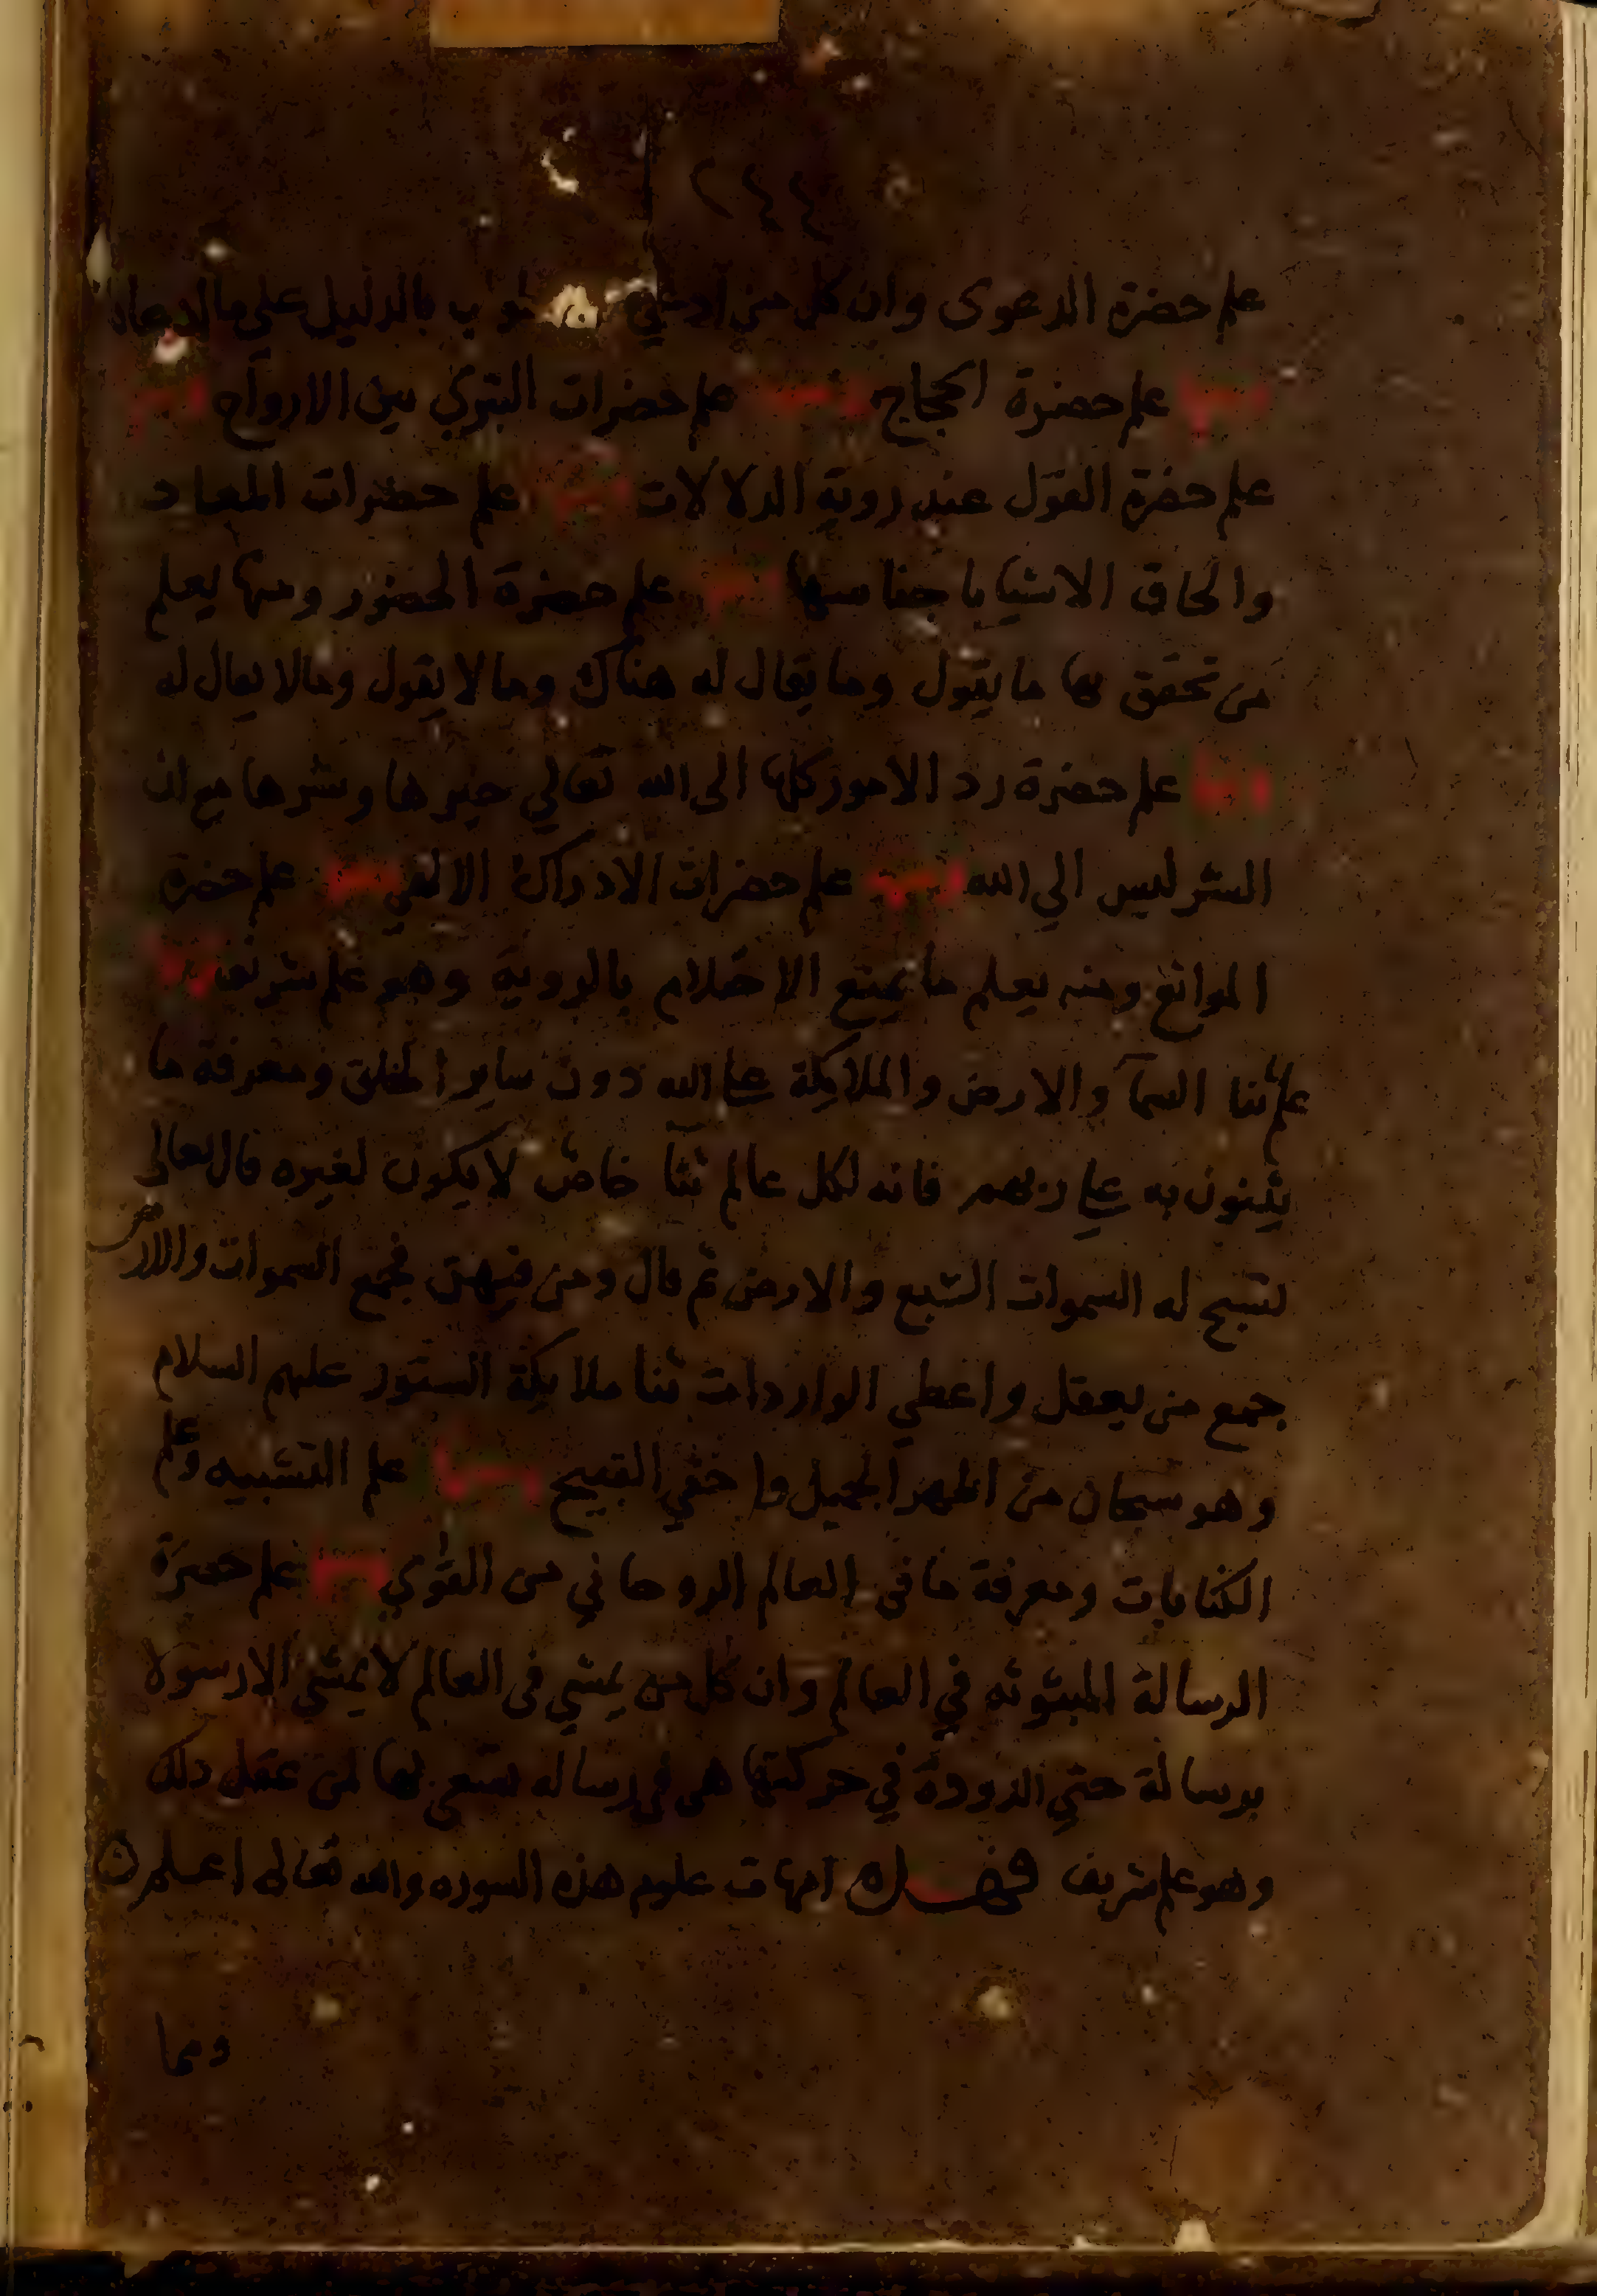 ٢٤٤
علم حضرة الدعوى وان كل من ادعي بالدليل على ما ادعاه
علم حضرة الحجاج علم حضرات التبري بين الارواح
علم حضرة القول عند روية الدلالات علم حضرات المعاد
والحاق الاشيا باجناسها علم حضرة الحضور ومنها يعلم
من تحقق بها ما يقول وما يقال له هناك وما لا يقول وما لا يقال له
ومنها علم حضرة رد الامور كلها الى الله تعالي خيرها وشرها مع ان
الشر ليس الي الله ومنها علم حضرات الادراك الالهي ومنها علم حضرة
الموانع ومنه يعلم ما يمنع الاحلام بالروية وهو علم شريف ومنها
علم ثنا السمآ والارض والملايكة على الله دون ساير الخلق ومعرفة ما
يثنون به علي ربهم فانه لكل عالم ثنآ خاص لا يكون لغيره قال تعالى
تسبح له السموات السبع والارض ثم قال ومن فيهن فجمع السموات والارض
جمع من يعقل واعطي الواردات ثنا ملايكة الستور عليهم السلام
وهو سبحان من اظهر الجميل واخفي القبيح ومنها علم التشبيه وعلم
الكنايات ومعرفة ما في العالم الروحاني من القوي ومنها علم حضرة
الرسالة المبثوثه في العالم وان كل من يمشي في العالم لا يمشي الا رسولا
برسالة حتي الدودة في حركتها هي في رساله تسعى بها لمن عقل ذلك
وهو علم شريف فهذه امهات علوم هذه السوره والله تعالى اعلم
ومما